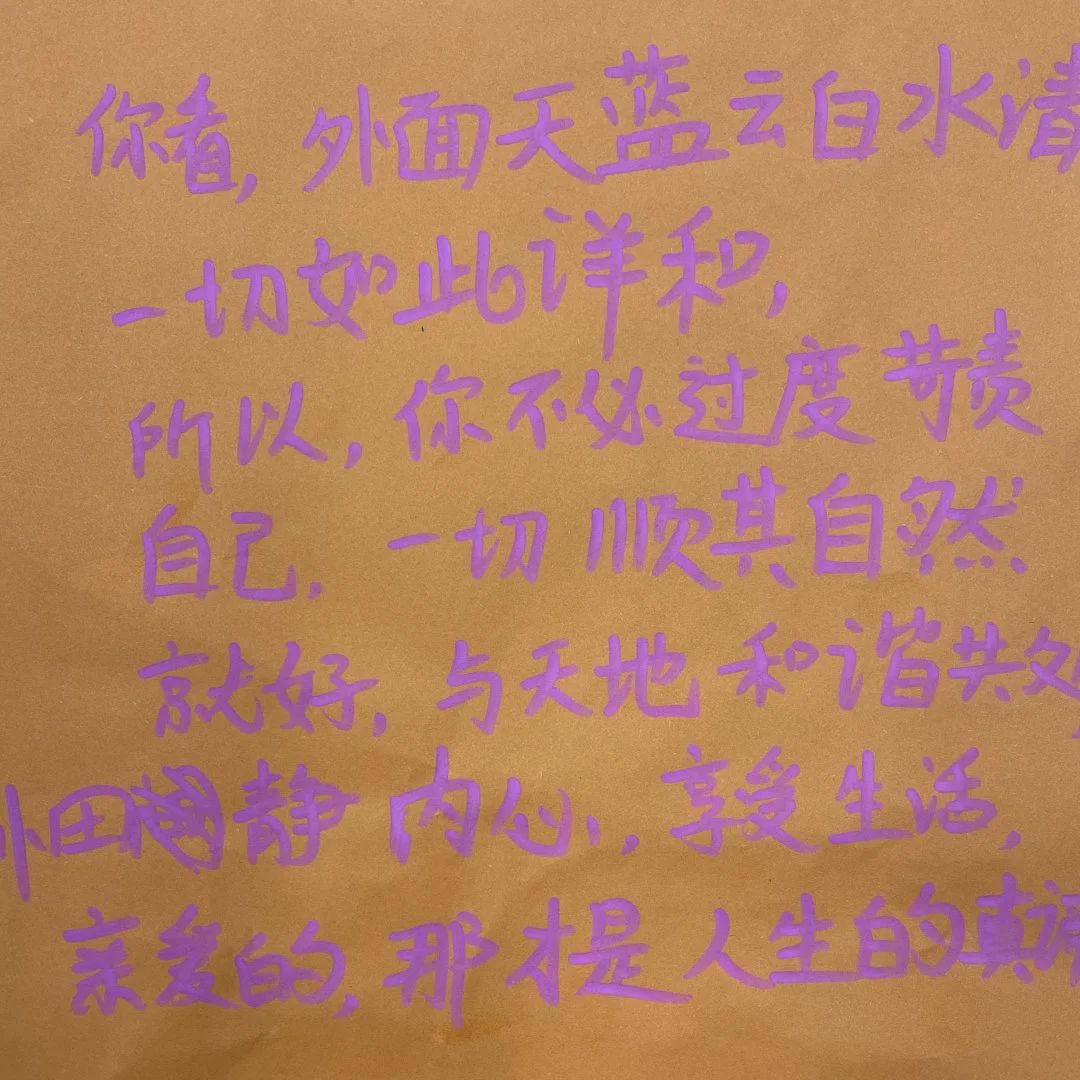 你看,外面天蓝云白水清
一切如此详和,
所以,你不必过度苛责
自己.一切顺其自然
就好,与天地和谐共处
细静内心,享受生活,
亲爱的,那才是人生的真谛